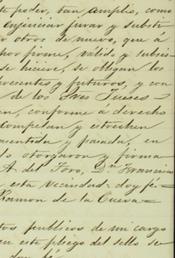 te poder, tan amplio, como
enjuiciar jurar y substi
r otros de nuevo, que á
por firme, valido y subsis
se decisre, se obligan los
presentes y futuros, y con
de los Sres Jueses
en, conforme á derecho
Competan y estrechen
sentida y pasada, en
lo otorgaron y firma
A. del Toro, Dn Francisco
esta vecindad: doy fé=
Ramon de la Cueva=
tos publicos de mi cargo
en este pliego del sello se